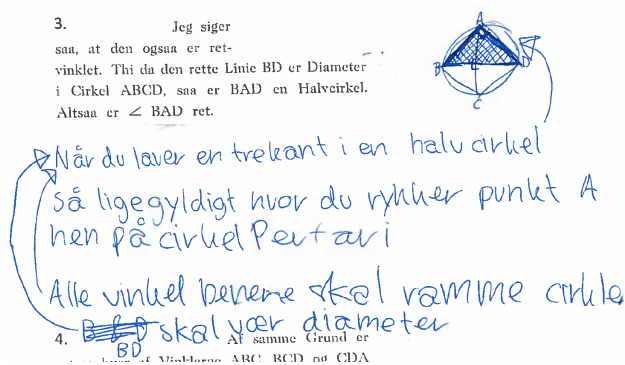 3. Jeg siger
saa, at den ogsaa er ret-
vinklet. Thi da den rette Linie BD er Diameter
i Cirkel ABCD, saa er BAD en Halvcirkel.
Altsaa er ∠ BAD ret.
A
B E D
C
Når du laver en trekant i en halvcirkel
så ligegyldigt hvor du rykker punkt A
hen på cirkel
Alle vinkel benene skal ramme cirkle
skal vær diameter
BD
4. Af samme Grund er
af Vinklerne ABC, BCD og CDA